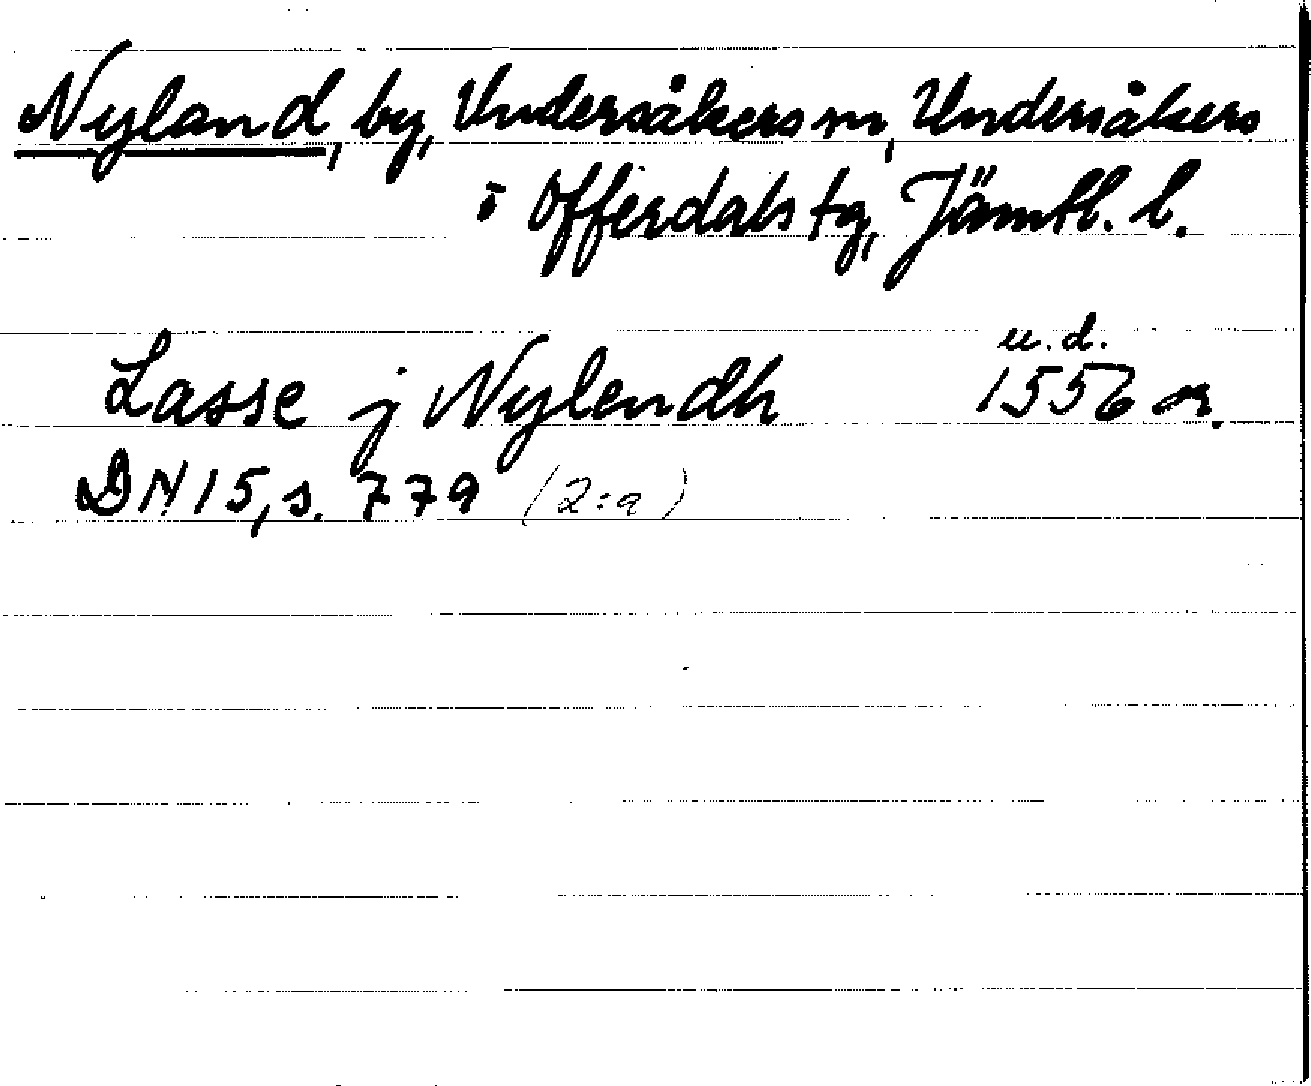 Nyland, by, Undersåkers sn, Undersåkers
i Offerdals tg, Jämtl. l.
u.d.
Lasse j Nylendh 1556 or.
DN 15, s. 779 (2:a)